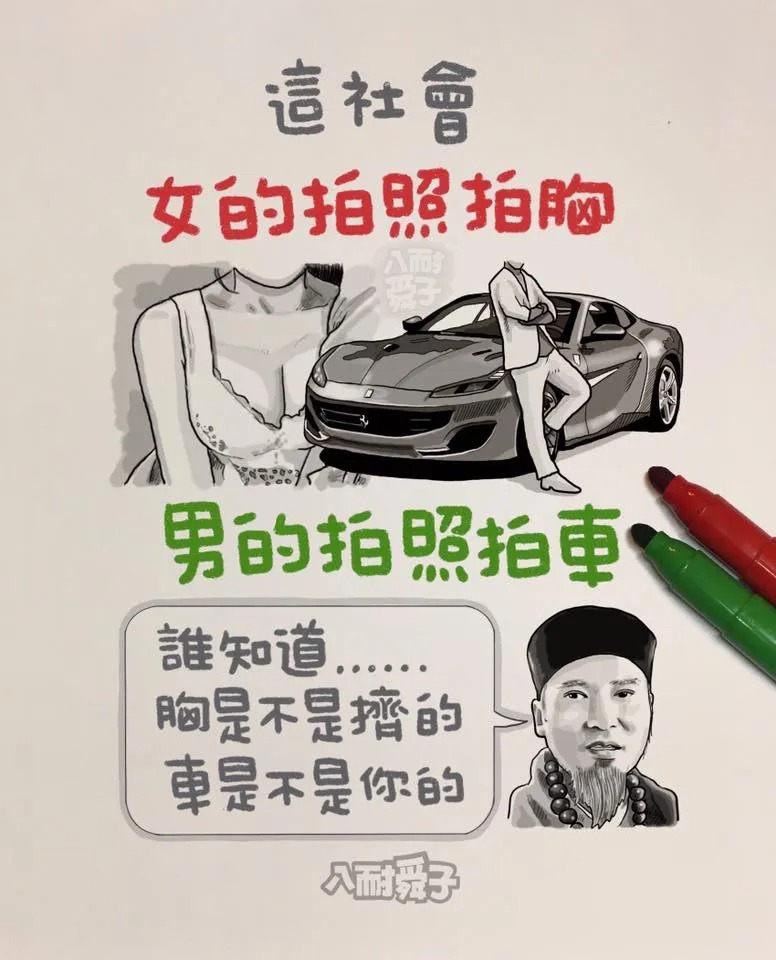 這社會
女的拍照拍胸
八耐
舜子
男的拍照拍車
誰知道......
胸是不是擠的
車是不是你的
八耐舜子